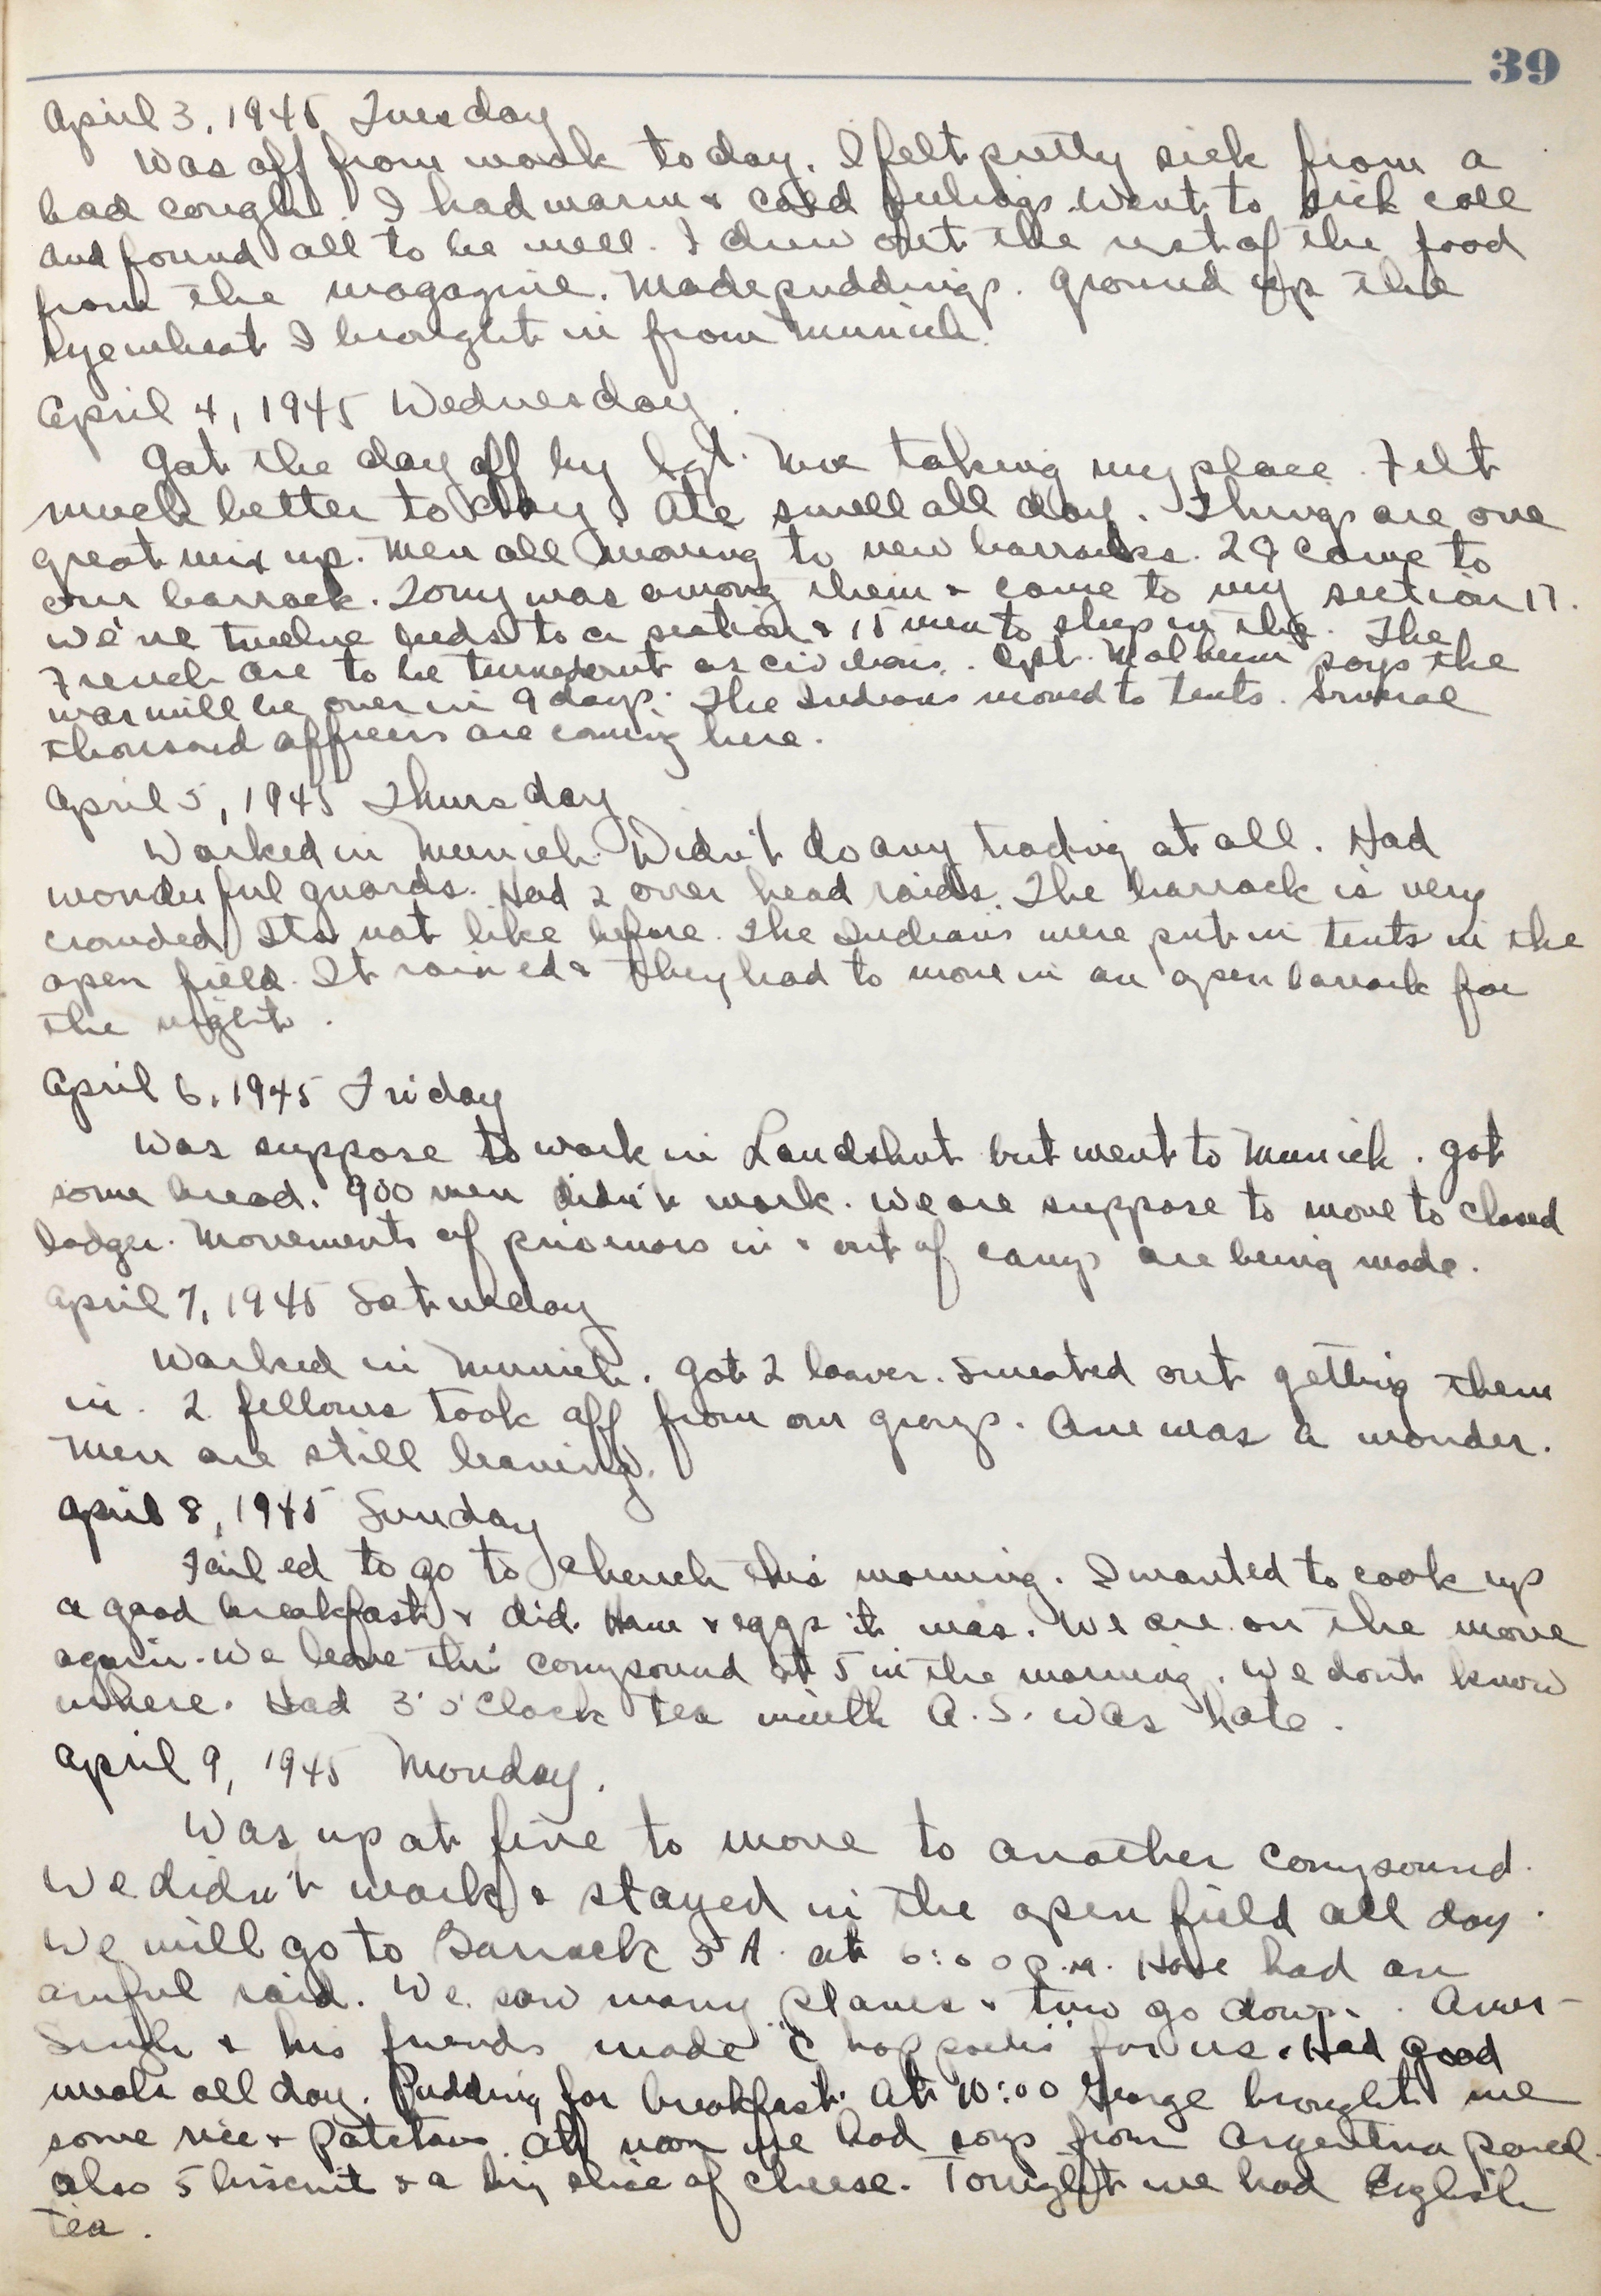 39
April 3, 1945 Tuesday
Was off from work today. I felt pretty sick from a
bad cough. I had warm & cold feelings. Went to sick call
and found all to be well. I drew out the rest of the food
from the magazine. Made puddings. Ground up the
rye wheat I brought in from Munich.
April 4, 1945 Wednesday.
Got the day off by Sgt. taking my place. Felt
much better today. Ate swell all day. Things are one
great mix up. Men all moving to new barracks. 29 came to
our barrack. Tony was among them & came to my section 17.
We've twelve beds to a section & 15 men to sleep in them. The
French are to be turned out as civilians. Capt. says the
war will be over in 9 days. The Indians moved to tents. Several
thousand officers are coming here.
April 5, 1945 Thursday
Worked in Munich. Didn't do any trading at all. Had
wonderful guards. Had 2 over head raids. The barrack is very
crowded. Its not like before. The Indians were put in tents in the
open field. It rained & they had to move in an open barrack for
the night.
April 6, 1945 Friday
Was suppose to work in Landshut but went to Munich. Got
some bread. 900 men didn't work. We are suppose to move to closed
lodger. Movements of prisoners in & out of camp are being made.
April 7, 1945 Saturday
Worked in Munich. Got 2 loaves. Sweated out getting them
in. 2 fellows took off from our group. One was a wonder.
Men are still leaving.
April 8, 1945 Sunday
Failed to go to church this morning. I wanted to cook up
a good breakfast & did. Ham & eggs it was. We are on the move
again. We leave this compound at 5 in the morning. We dont know
where. Had 3 o'clock tea with A.S. Was late.
April 9, 1945 Monday.
Was up at five to move to another compound.
We didn't work & stayed in the open field all day.
We will go to Barrack 5 A. at 6:00 P.M. Have had an
awful raid. We saw many planes & two go down. Amer-
Singh & his friends made "Choppaties" for us. Had good
meals all day. Pudding for breakfast. At 10:00 George brought me
some rice & Patatoes. At noon we had soup from Argentina parcel.
also 5 biscuit & a big slice of cheese. Tonight we had English
tea.